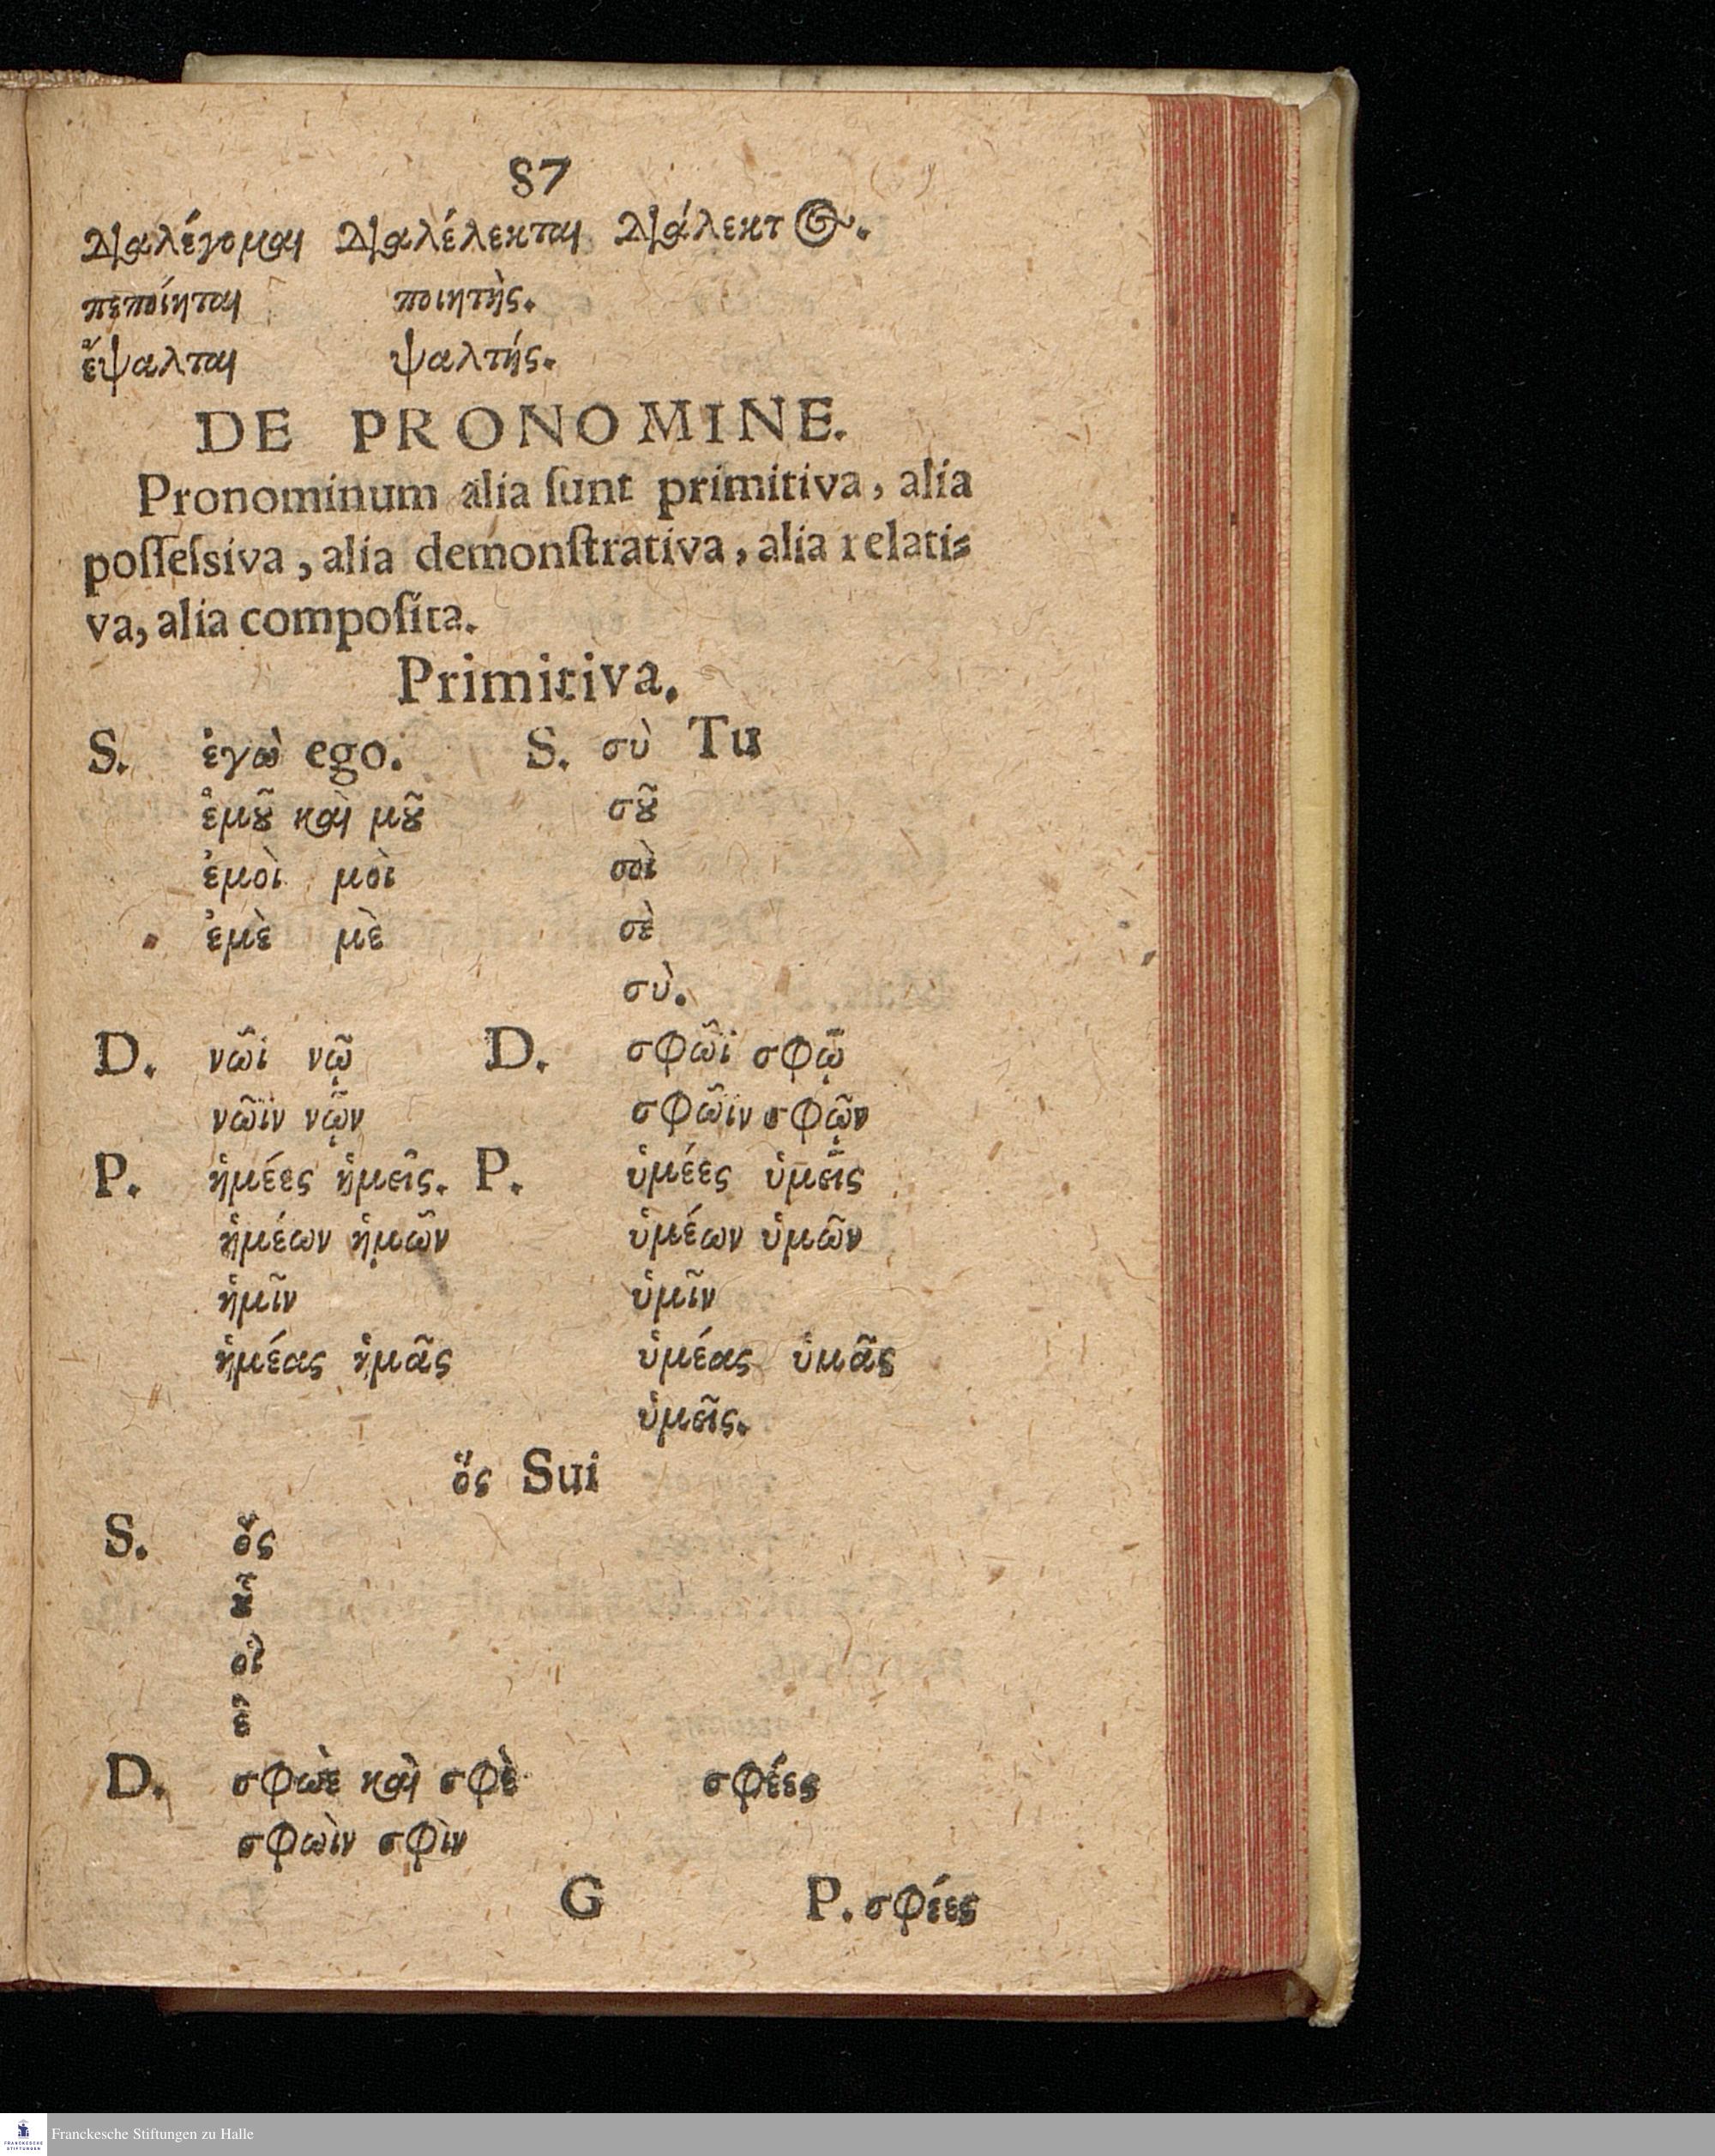 87
διαλέγομαι διαλέλεκται διάλεκτος.
πεποίηται ποιητὴς.
ἔψαλται ψαλτής.
DE PRONOMINE.
Pronominum alia ſunt primitiva, alia
poſſeſsiva, alia demonſtrativa, alia relati-
va, alia compoſita.
Primitiva.
S. ἐγὼ ego. S. σὺ Tu
ἐμοῦ καὶ μοῦ σοῦ
ἐμοὶ μοὶ σοὶ
ἐμὲ μὲ σὲ
σὺ.
D. νῶϊ νῷ D. σφῶϊ σφῷ
νῶϊν νῷν σφῶϊν σφῷν
P. ἡμέες ἡμεῖς. P. ὑμέες ὑμεῖς
ἡμέων ἡμῶν ὑμέων ὑμῶν
ἡμῖν ὑμῖν
ἡμέας ἡμᾶς ὑμέας ὑμᾶς
ὑμεῖς.
ὅς Sui
S. ὅς
οὗ
οἷ
ἓ
D. σφωὲ καὶ σφὲ σφέες
σφωὶν σφὶν
G P. σφέες
Franckesche Stiftungen zu Halle